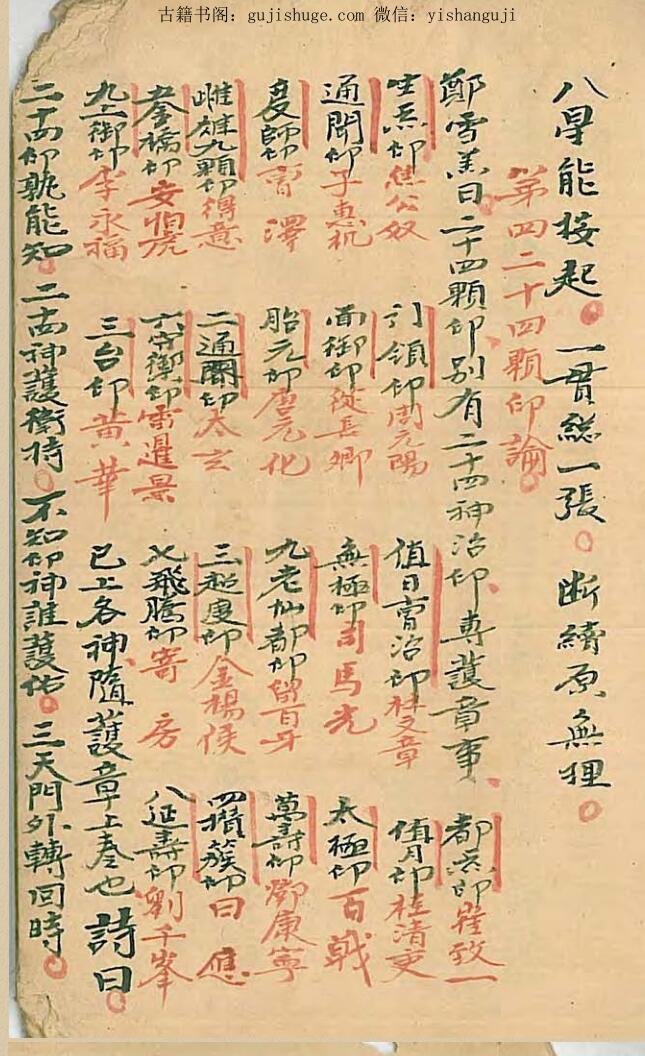 古籍书阁：gujishuge.com 微信：yishanguji
八星能接起。一貫総一張。断續原無狸。
第四二十四顆印論。
鄭雪羔曰二十四顆印別有二十四神治印專護章事、都点印崔致一
生炁印焦公奴 引領印周元陽 值日曹治印杜文章 值月印桂清吏
通聞印子惠机 面御印從長卿 無極印司馬光 太極印百戟
度師印曹澤 胎元印唐元化 九老仙都印留百升 萬壽印鄧康寧
雌雄九顆印得意 二通關印太玄 三超度印金楊侯 四攢簇印日應
五釜橋印安伯虎 六守衛印雷暹景 七飛騰印寄房 八延壽印劉千峯
九上御印李永福 三台印黄華 已上各神隨護章上奏也詩曰。
二十四印孰能知。二十四神護衛持。不知印神誰護佑。三天門外轉回時。